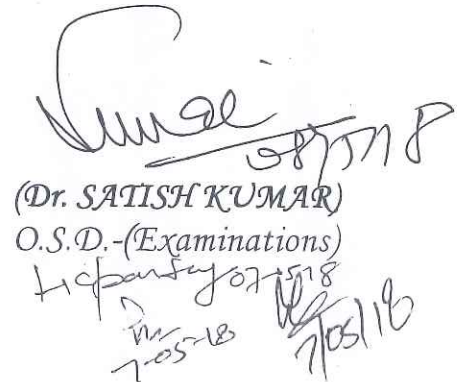 08/5/18
(Dr. SATISH KUMAR)
O.S.D.-(Examinations)
07-5-18
7-05-18
7/05/18